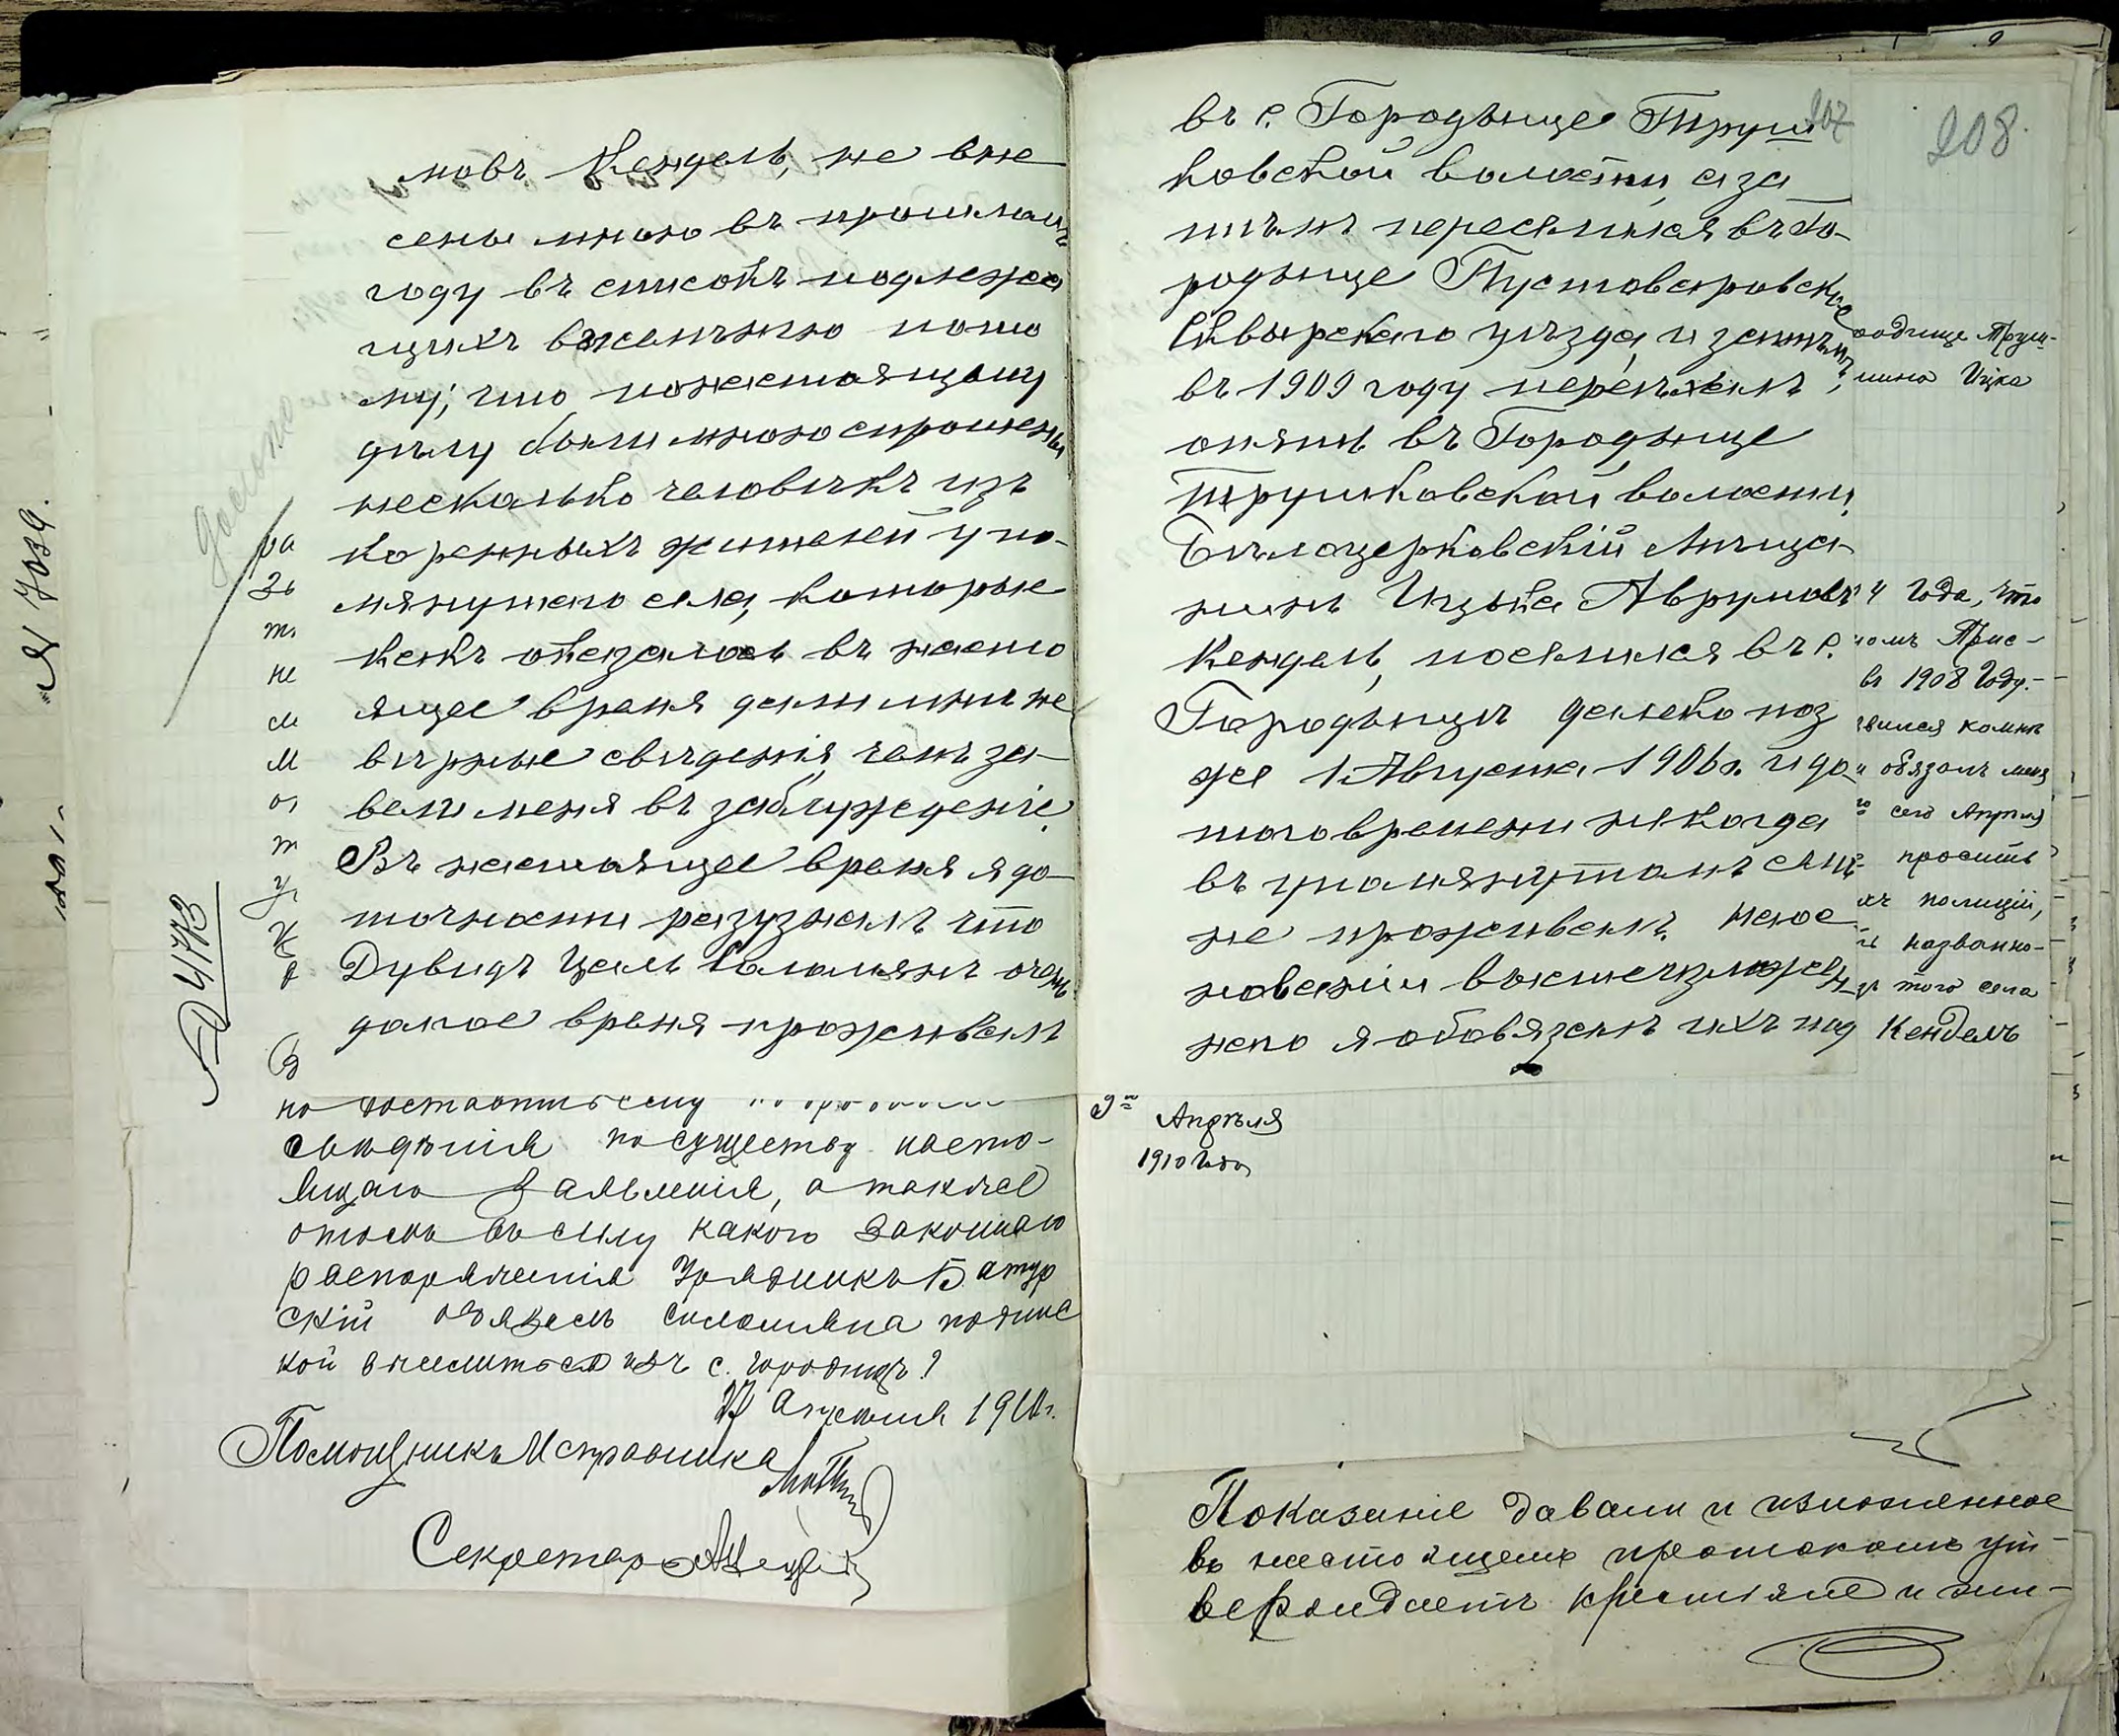 новъ Кендель, не вне
сены мною въ прошломъ
году въ списокъ подлежа
щихъ выселенію пото
му, что понастоящому
дѣлу были мною спрошены
несколько человѣкъ изъ
коренныхъ жителей упо-
мянутаго села, которые
какъ оказалось въ насто
ящее время дали мнѣ не
вѣрные свѣдѣнія, чемъ за-
вели меня въ заблужденіе.
Въ настоящее время я до-
точности разузналъ что
Дувидъ Цаль Саломянъ очень
долгое время проживалъ
но доставить сему
свѣдѣнія по существу насто-
ящаго Заявленія, а также
въ силу какого законнаго
распоряженія Урядникъ Батур
скій обязалъ Саломяна подпис
кой выселиться изъ с. Городищъ?
27 Апреля 1910 г.
Помощникъ Исправника
Секретарь
№ 7039.
№ 4773
ра
за
т
не
си
м
от
т
у
я
В
въ с. Городыще Труш
207
208.
ковской волости, а за
тѣмъ переселился въ Го-
родыще Пустоваровской
Сквырскаго уѣзда, и затѣмъ
въ 1909 году переѣхалъ
опять въ Городыще
Трушковской волости,
Бѣлоцерковскій Мѣща-
нинъ Ицька Аврумовъ
Кендель, поселился въ с.
Городыщѣ далеко поз
же 1 Августа 1906 г. и до
того времени никогда
въ упомянутомъ селѣ
не проживалъ. На ос
нованіи вышеизложен-
наго я обовязалъ ихъ под
родище Труш-
Ицка
4 года, что
номъ Прис-
въ 1908 году.-
вился комнѣ
и обязалъ меня
го сего Апрѣля
просить
хъ полиціи,
названно-
того села
Кендель
9го Апрѣля
1910 года
Показаніе давали и изложенное
въ настоящемъ протоколѣ ут-
верждаетъ крестьяне и жи-